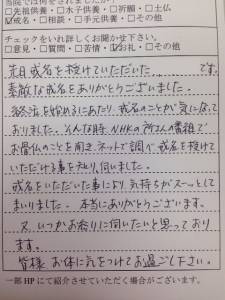 当院では何をされましたか？
□先祖供養・□水子供養・□祈願・□土仏
☑戒名・□相談・□手元供養・□その他
チェックをいれ詳しくお聞かせ下さい。
□意見・□質問・□苦情・☑お礼・□その他
先日戒名を授けていただいた です。
素敵な戒名をありがとうございました。
終活を始めるにあたり、戒名のことが気になって
おりました。そんな時、NHKの所さん!番組で
お骨仏のことを聞き、ネットで調べ戒名を授けて
いただける事を知り、伺いました。
戒名をいただいた事により、気持ちがスーッとして
まいりました。本当にありがとうございます。
又、いつかお参りに伺いたいと思っており
ます。
皆様、お体に気をつけてお過ごし下さい。
一部HPにて紹介させていただく場合がございます。